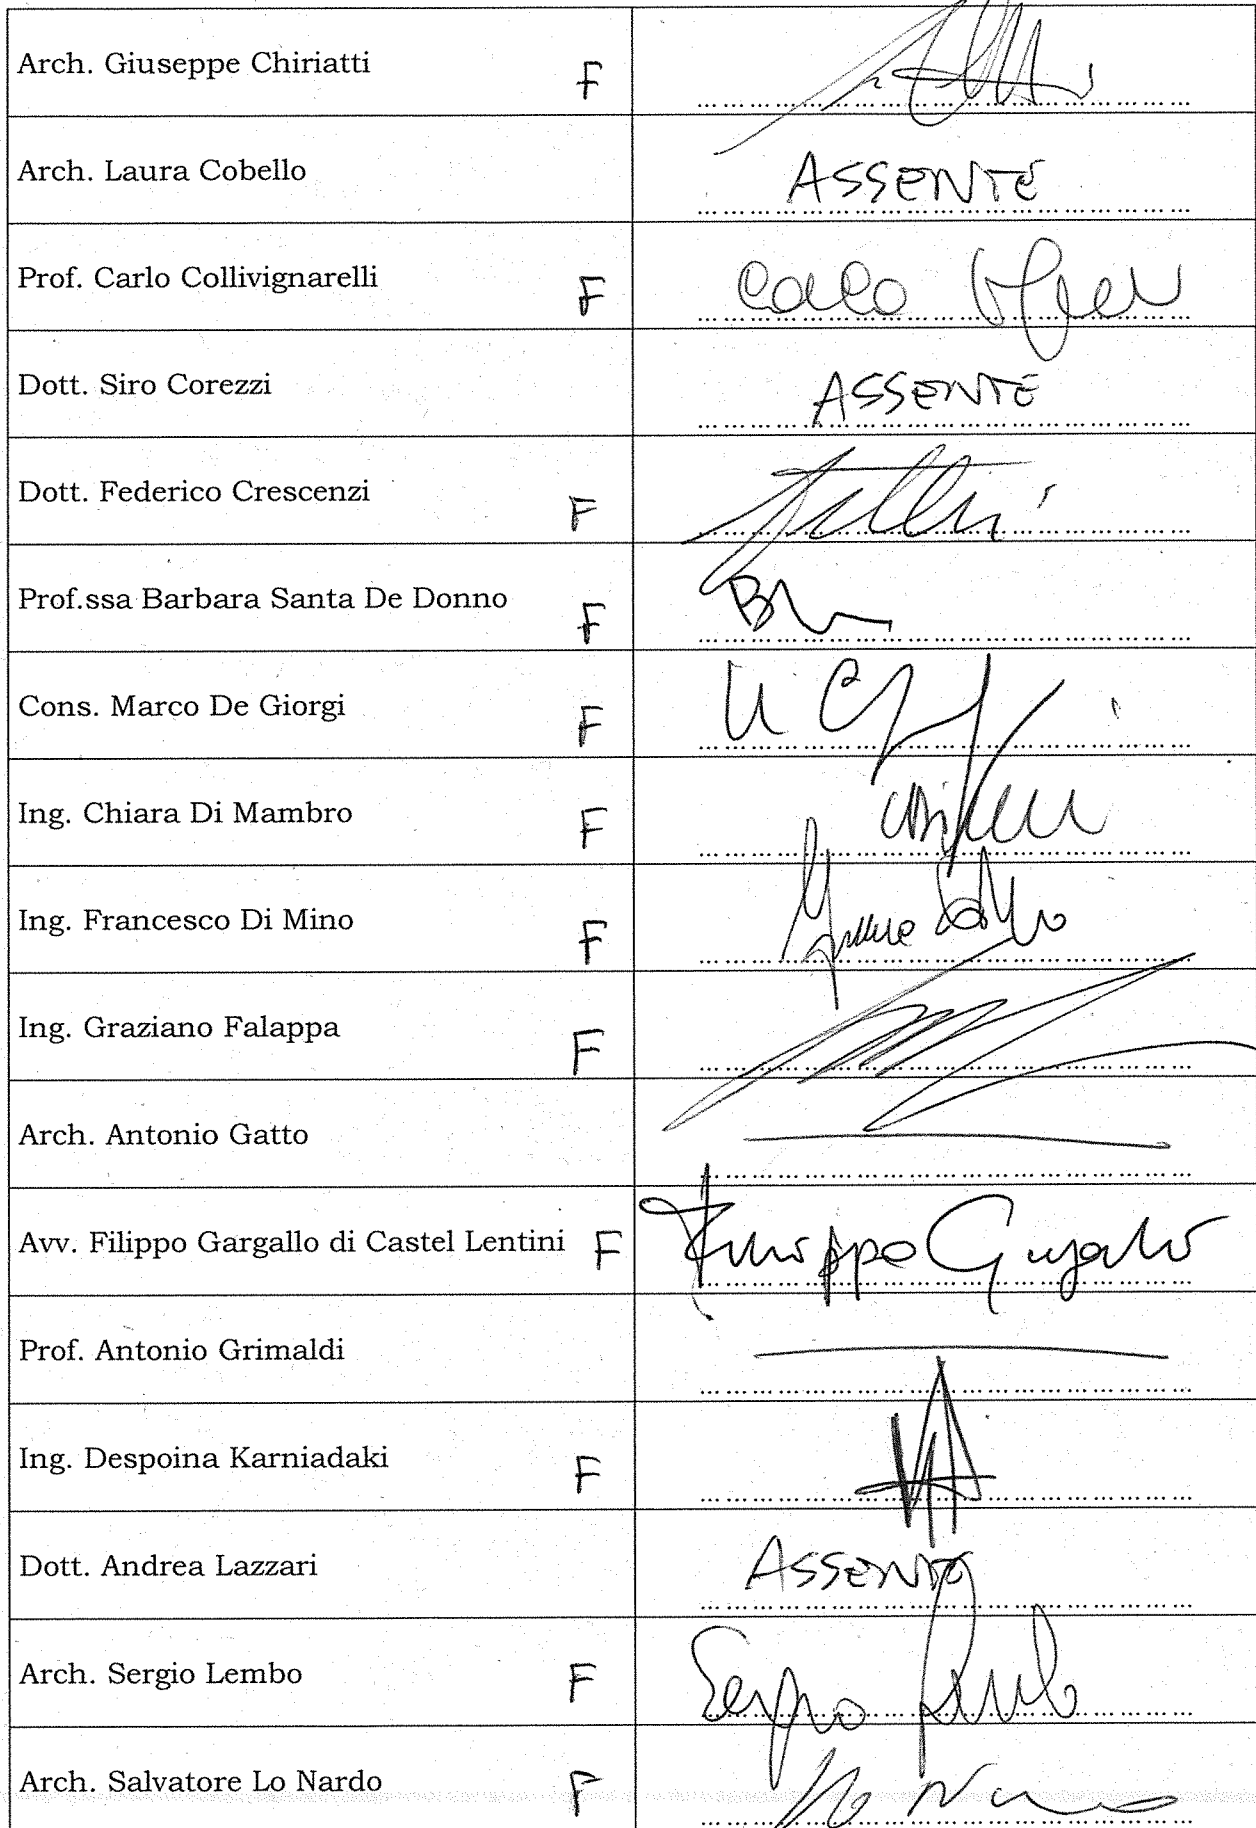 Arch. Giuseppe Chiriatti F
Arch. Laura Cobello ASSENTE
Prof. Carlo Collivignarelli F Carlo
Dott. Siro Corezzi ASSENTE
Dott. Federico Crescenzi F
Prof.ssa Barbara Santa De Donno F
Cons. Marco De Giorgi F
Ing. Chiara Di Mambro F
Ing. Francesco Di Mino F
Ing. Graziano Falappa F
Arch. Antonio Gatto
Avv. Filippo Gargallo di Castel Lentini F Filippo Gargallo
Prof. Antonio Grimaldi
Ing. Despoina Karniadaki F
Dott. Andrea Lazzari ASSENTE
Arch. Sergio Lembo F Sergio Lembo
Arch. Salvatore Lo Nardo F Lo Nardo